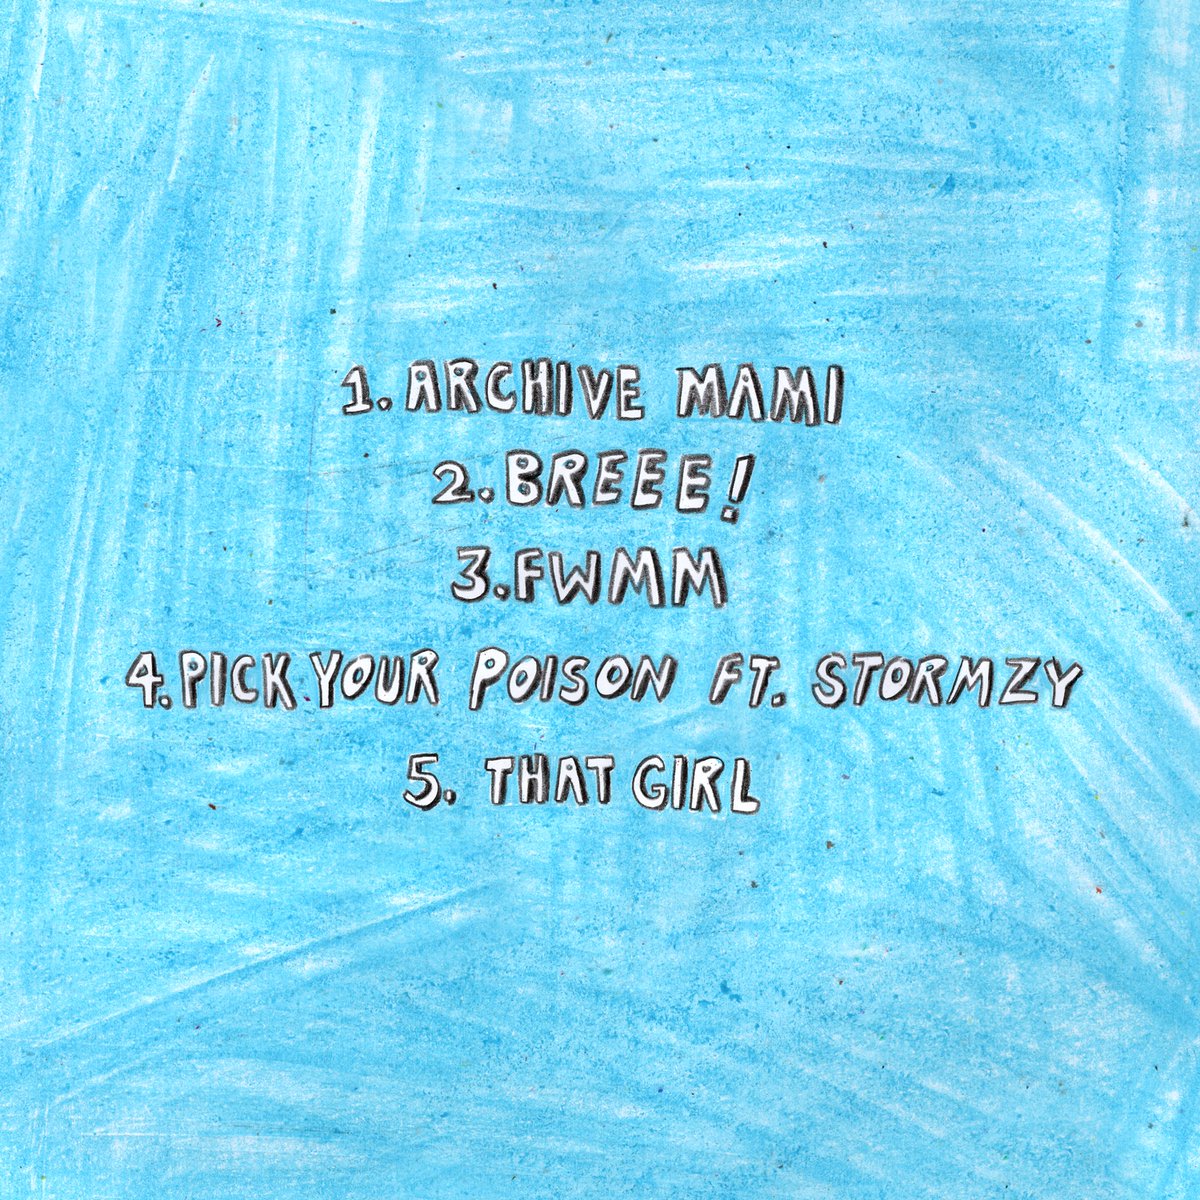 1. ARCHIVE MAMI
2. BREEE!
3. FWMM
4. PICK YOUR POISON FT. STORMZY
5. THAT GIRL